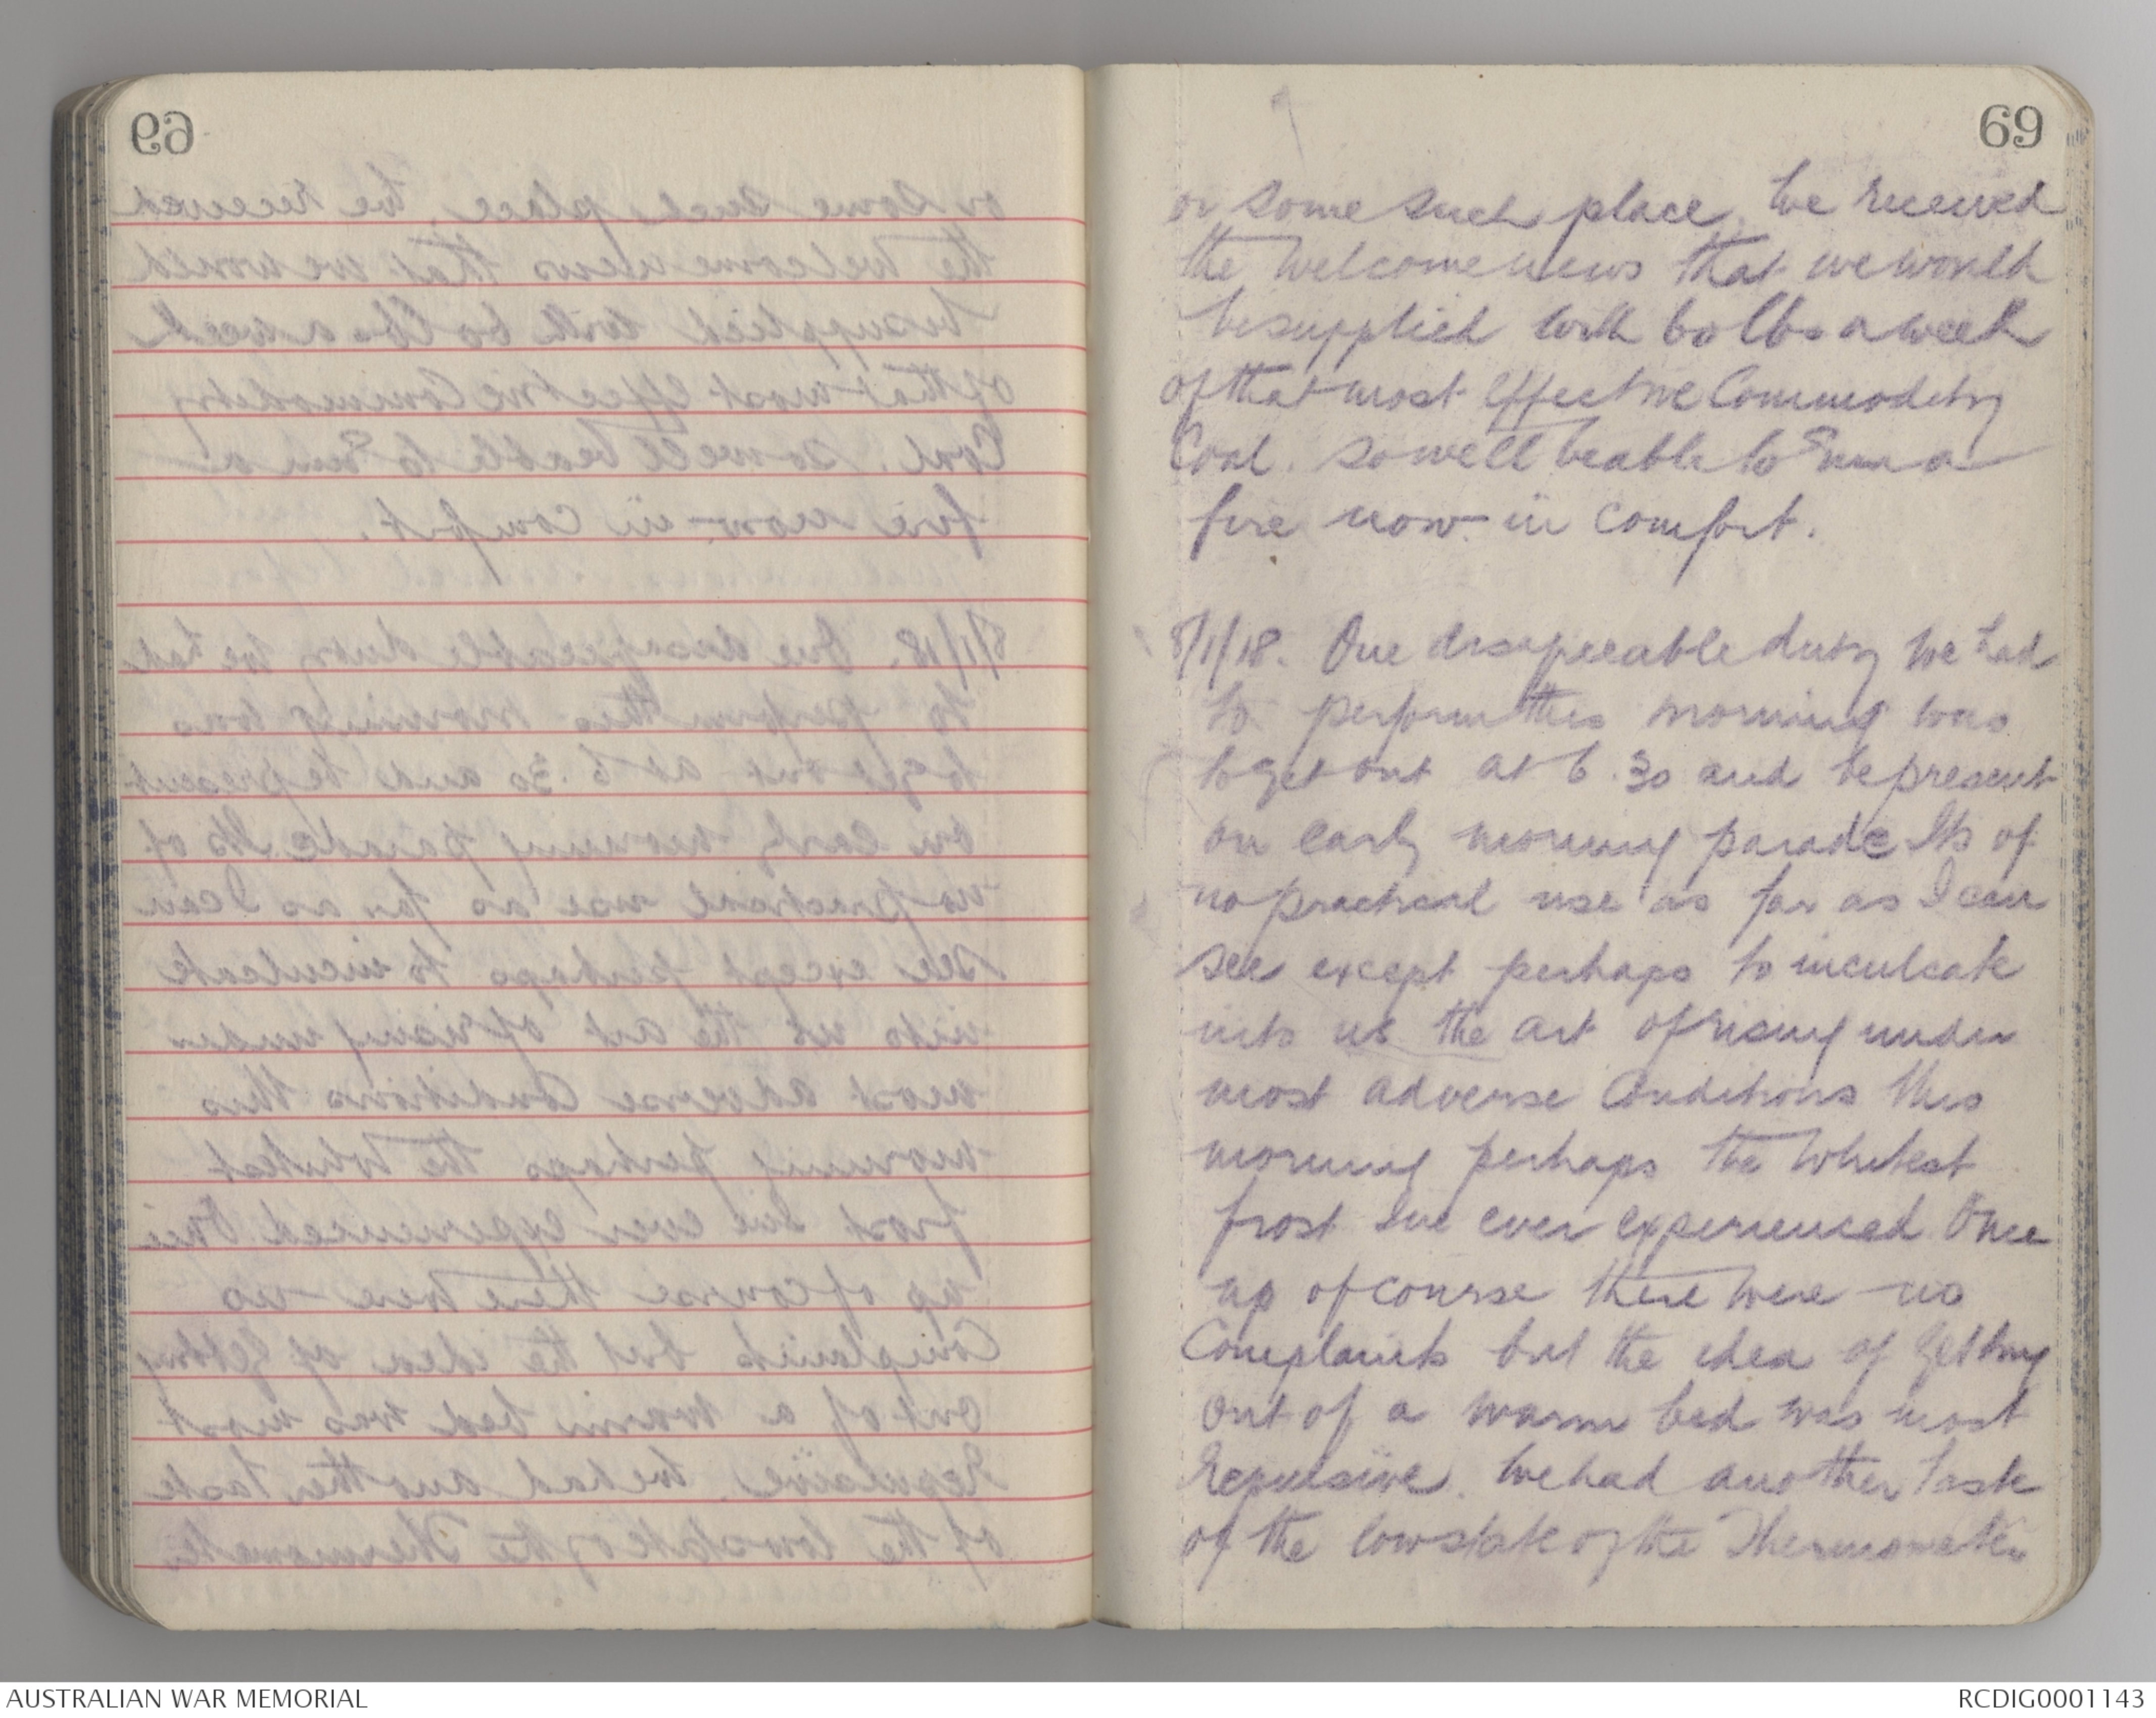 69
or some such place, We received
the welcome news that we would
be supplied with 60 lbs a week
of that most effective Commodity
Coal. so well be able to run a
fire now in comfort.
8/1/18. One disagreeable duty we had
to perform this morning was
to get out at 6.30 and be present
on early morning parade Its of
no practical use as far as I can
see except perhaps to inculcate
into us the art of rising under
most adverse Conditions this
morning perhaps the Whitest
frost Ive ever experienced Once
up of course there were no
Complaints but the idea of getting
out of a warm bed was most
repulsive. We had another task
of the low state of the Thermometer
AUSTRALIAN WAR MEMORIAL
RCDIG0001143